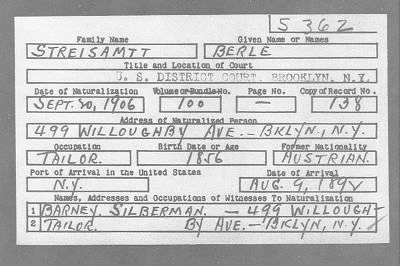 S 362
Family Name Given Name or Names
STREISAMTT BERLE
Title and Location of Court
U. S. DISTRICT COURT, BROOKLYN, N.Y.
Date of Naturalization Volume or Bundle No. Page No. Copy of Record No.
SEPT. 20, 1906 100 — 138
Address of Naturalized Person
499 WILLOUGHBY AVE. — BKLYN., N.Y.
Occupation Birth Date or Age Former Nationality
TAILOR. 1856 AUSTRIAN.
Port of Arrival in the United States Date of Arrival
N.Y. AUG. 9, 189
Names, Addresses and Occupations of Witnesses To Naturalization
1 BARNEY SILBERMAN. — 499 WILLOUGH-
2 TAILOR. BY AVE. — BKLYN, N.Y.